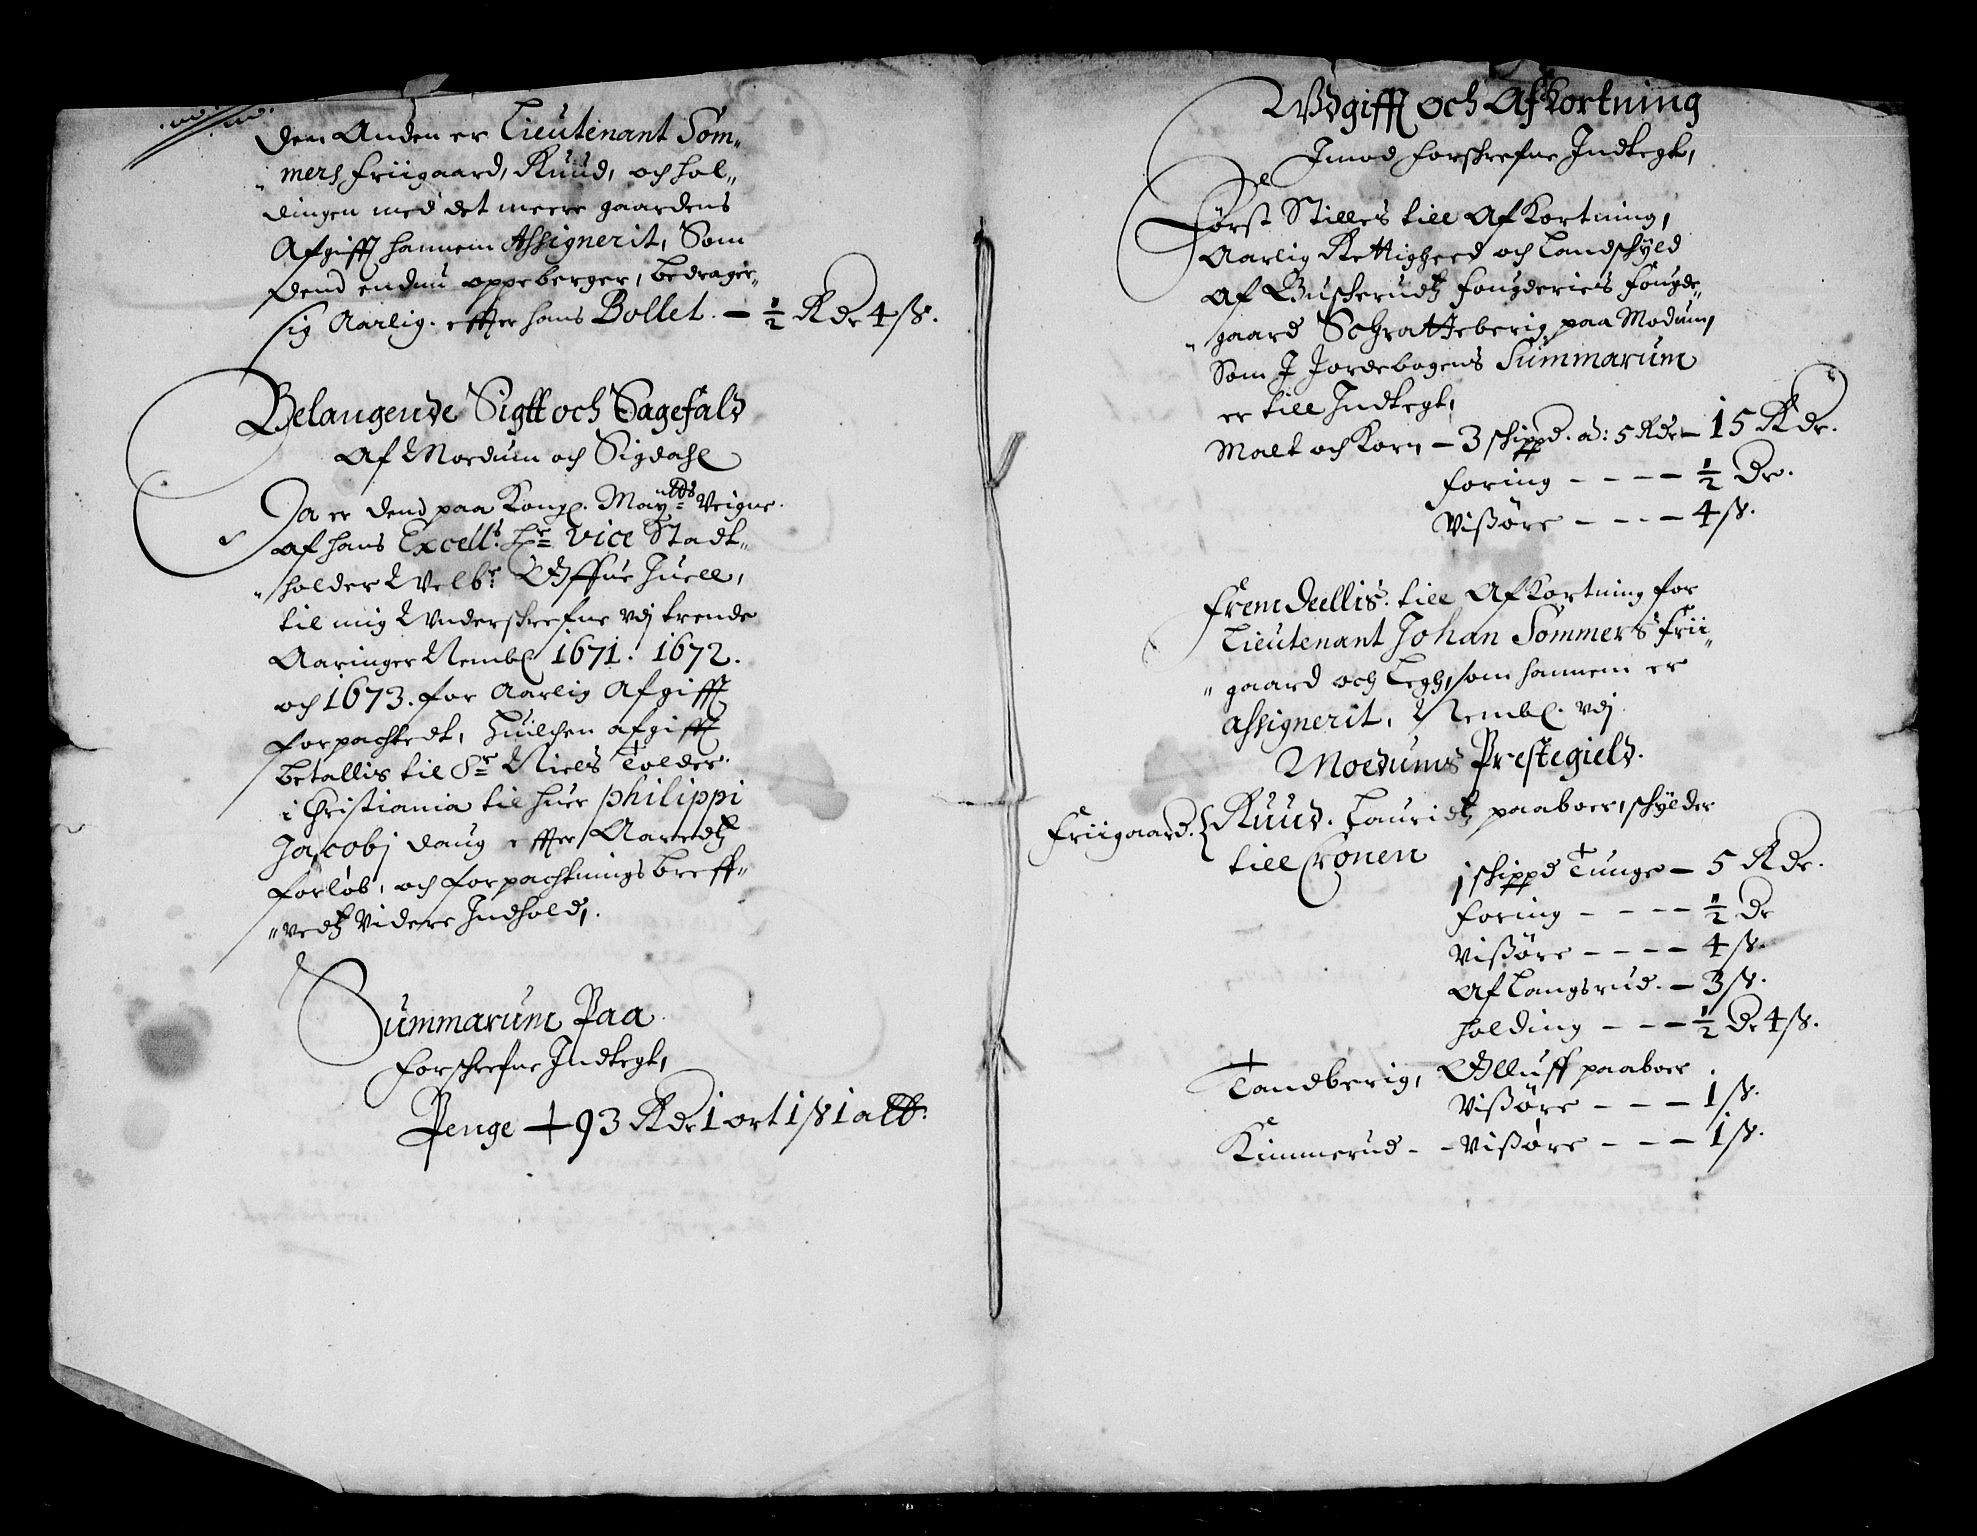 Den Anden er Lieutenant Søm„
„mers friigaard, Ruud, och hol„
dingen med det meere gaardens
Afgifft hannem Assignerit, Som
Dend endnu oppeberger, bedrager
sig Aarlig. effter hans Bollet. — ½ Rdr 4 ß.
Belangende Sigtt och Sagefald
Af Moedum och Sigdahl
Da er dend paa Kong. May:tts Veigne.
af hans Excell:s Hr vice Stadt„
„holder Welb:r Offue Juell,
til mig Underschrefne vdj trende
Aaringer Nembl 1671. 1672.
och 1673. for Aarlig Afgifft
forpachtedt, Huilchen afgifft
betallis til Sr Niels Tolder
i Christiania til huer philippi
Jacobj daug effter Aaredtz
forløb, och forpachtnings breff„
„vedtz videre Indhold,
Summarum Paa
forschrefne Indtegt,
Penge — 93 Rdr 1 ort 1 ß 1 alb.
Vdgifft och Afkortning
Imod forschrefne Indtegt,
Først Stilles till Afkortning,
Aarlig Rettigheed och Landschyld
af Buscherudtz fougderies fougde„
„gaard Schratteberig paa Modum,
Som J Jordebogens Summarum
er till Indtegt,
Malt och Korn — 3 schippd. a: 5 Rdr — 15 Rdr.
foring - - - — ½ Dr.
Vißøre - - - — 4 ß.
fremdeellis. till Afkortning for
Lieutenant Johan Sømmers frii„
„gaard och Legh, som hannem er
assignerit, Nembl. vdj
Moedums Prestegield.
friigaard. { Ruud. Lauridtz paaboer, schylder
till Cronen
j schippd Tunge — 5 Rdr.
foring - - - — ½ Dr
Vißøre - - - — 4 ß.
Af Langsrud. — 3 ß.
holding - - — ½ Dr 4 ß.
Tandberig, Olluff paaboer
Vißøre - - — 1 ß.
Kimmerud - - Vißøre - - — 1 ß.